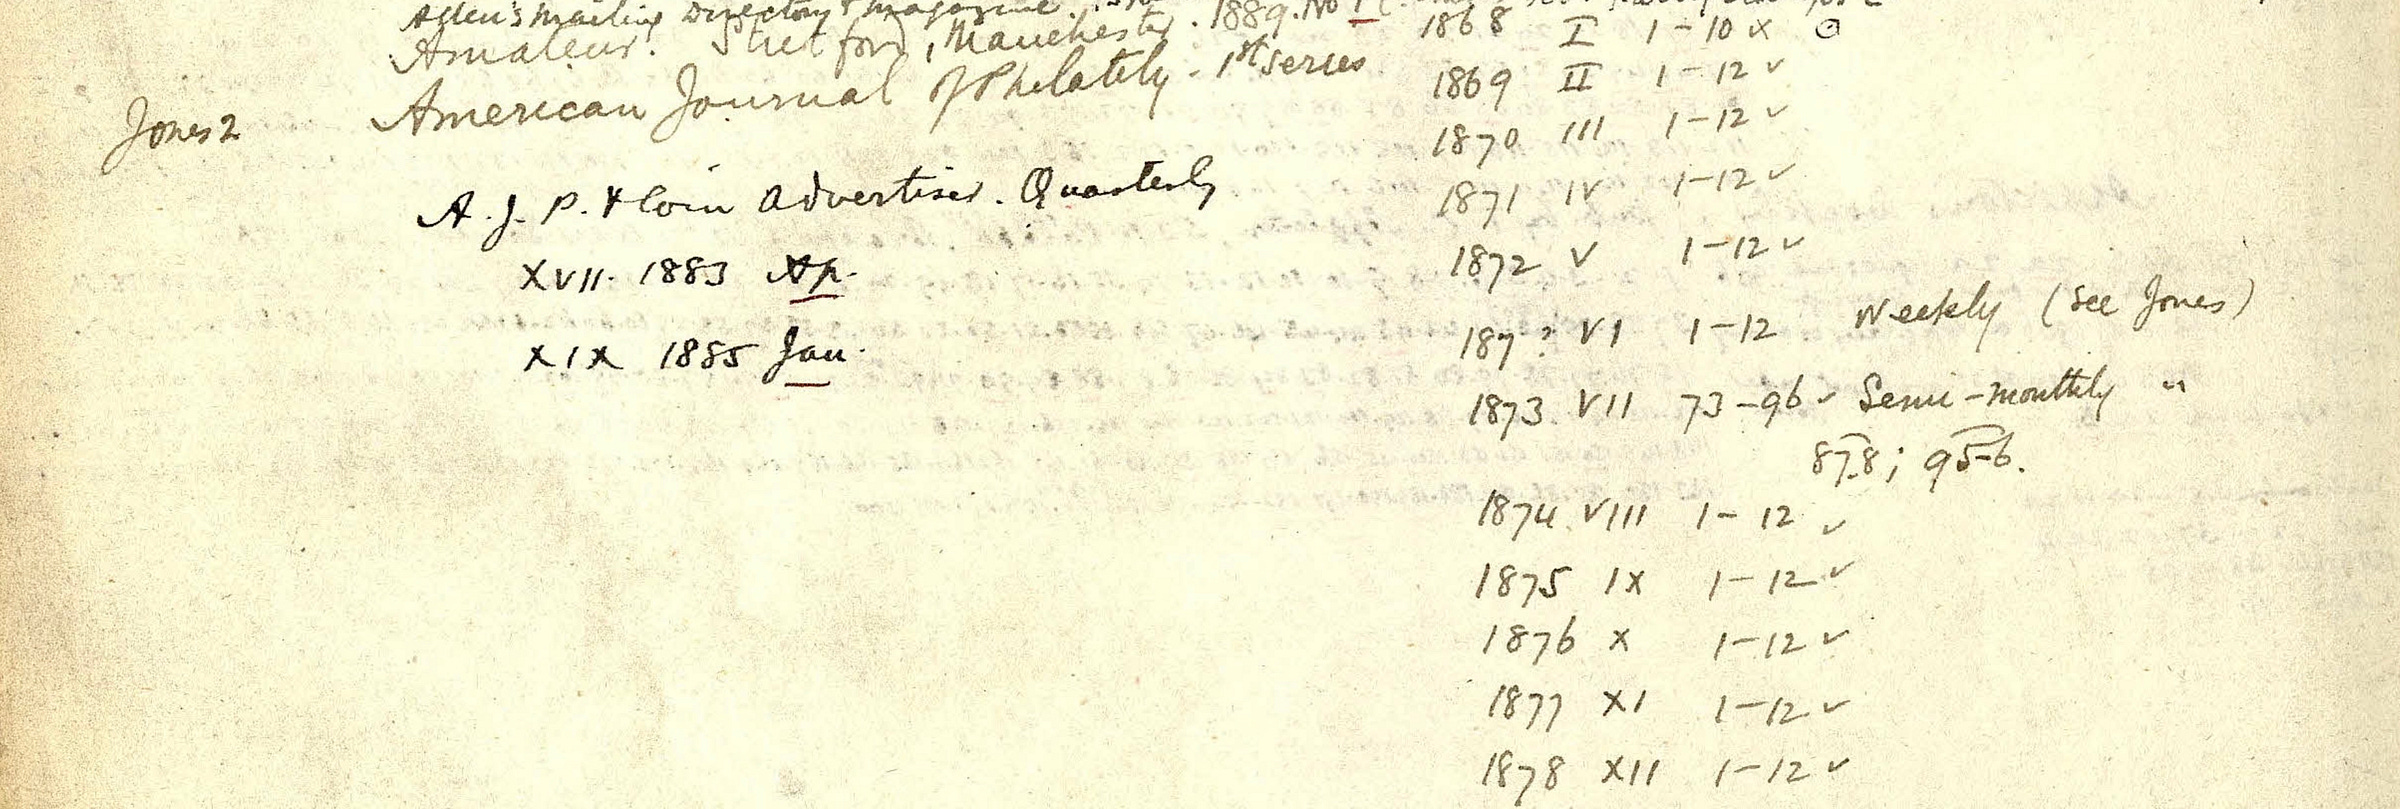 Mailing Directory & Magazine. 1889. No 1
Amateur. Stretford, Manchester.
Jones 2 American Journal of Philately - 1st series
1868 I 1-10 x ⊙
1869 II 1-12 ✓
1870 III 1-12 ✓
A. J. P. & Coin Advertiser. Quarterly
1871 IV 1-12 ✓
XVII. 1883 Ap.
1872 V 1-12 ✓
XIX 1885 Jan.
187? VI 1-12 Weekly (see Jones)
1873 VII 73-96 ✓ Semi-monthly "
87-8; 95-6.
1874 VIII 1-12 ✓
1875 IX 1-12 ✓
1876 X 1-12 ✓
1877 XI 1-12 ✓
1878 XII 1-12 ✓